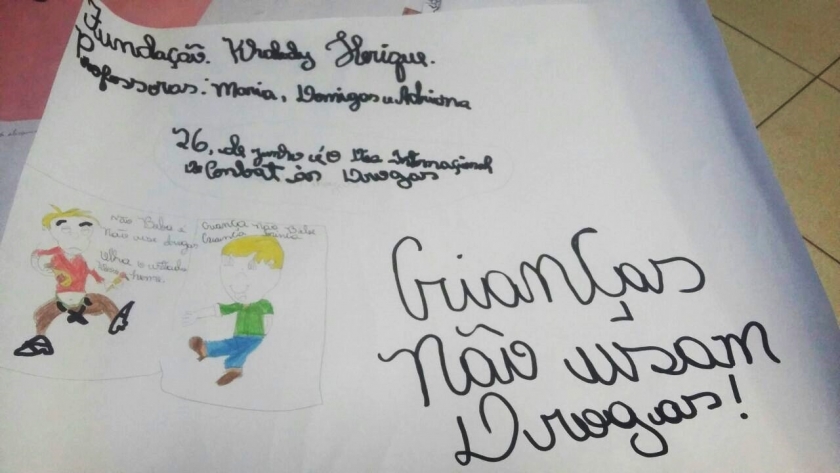 Fundação. Wralady Horique.
Professoras: Maria, Domigas e Adriana
26, de junho é o Dia Internaçional
de Combat às Drogas
Não Beba e
não use drogas
Olha o estado
desse home.
Criança não Bebe
Criança brinca
Crianças
não usam
Drogas!